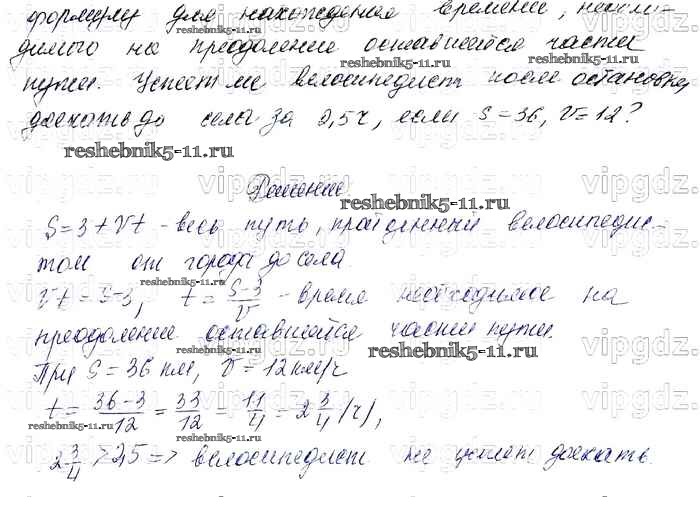 формулу для нахождения времени, необхо-
димого на преодоление оставшейся части
пути. Успеет ли велосипедист после остановки
доехать до села за 2,5ч, если S=36, V=12?
reshebnik5-11.ru
Решение
reshebnik5-11.ru
S=3+Vt - весь путь, пройденный велосипедис-
том от города до села
reshebnik5-11.ru
Vt=S-3, t=\frac{S-3}{V} - время необходимое на
преодоление оставшейся части пути.
reshebnik5-11.ru
reshebnik5-11.ru
При S=36 км, V=12 км/ч
t=\frac{36-3}{12}=\frac{33}{12}=\frac{11}{4}=2\frac{3}{4}(ч),
reshebnik5-11.ru
2\frac{3}{4}>2,5=> велосипедист не успеет доехать.
reshebnik5-11.ru
vipgdz.ru